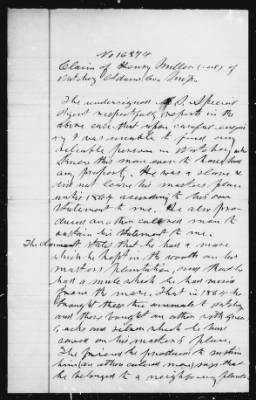 No 14874
Claim of Henry Miller (col) of
Natchez Adams Co. Miss.
The undersigned Special
Agent respectfully reports in the
above case that upon careful enquiry
I was unable to find any
reliable person in Natchez who
knew this man ever to have had
any property. He was a slave &
did not leave his masters place
until 1864 according to his own
statement to me. He also pro-
duced another colored man to
sustain his statement to me.
The claimant states that he had a mare
which he kept in the woods on his
masters plantation, and that he
had a mule which he had raised
from the mare. That in 1864 he
brought these two animals to Natchez
and there bought an other with green
backs and silver which he have
earned on his masters place.
The friend he produced to sustain
him (an other colored man) says that
he belonged to a neighboring